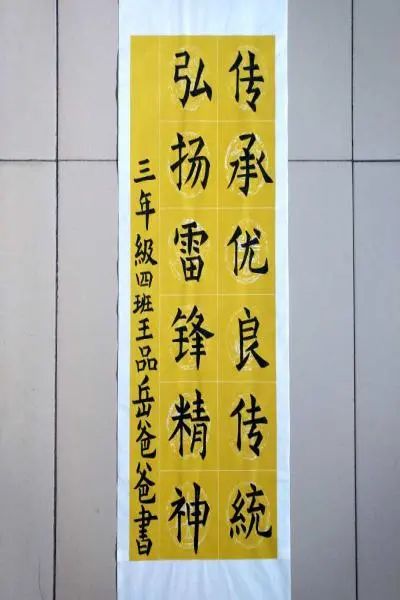 传承优良传統
弘扬雷锋精神
三年級四班王品岳爸爸書